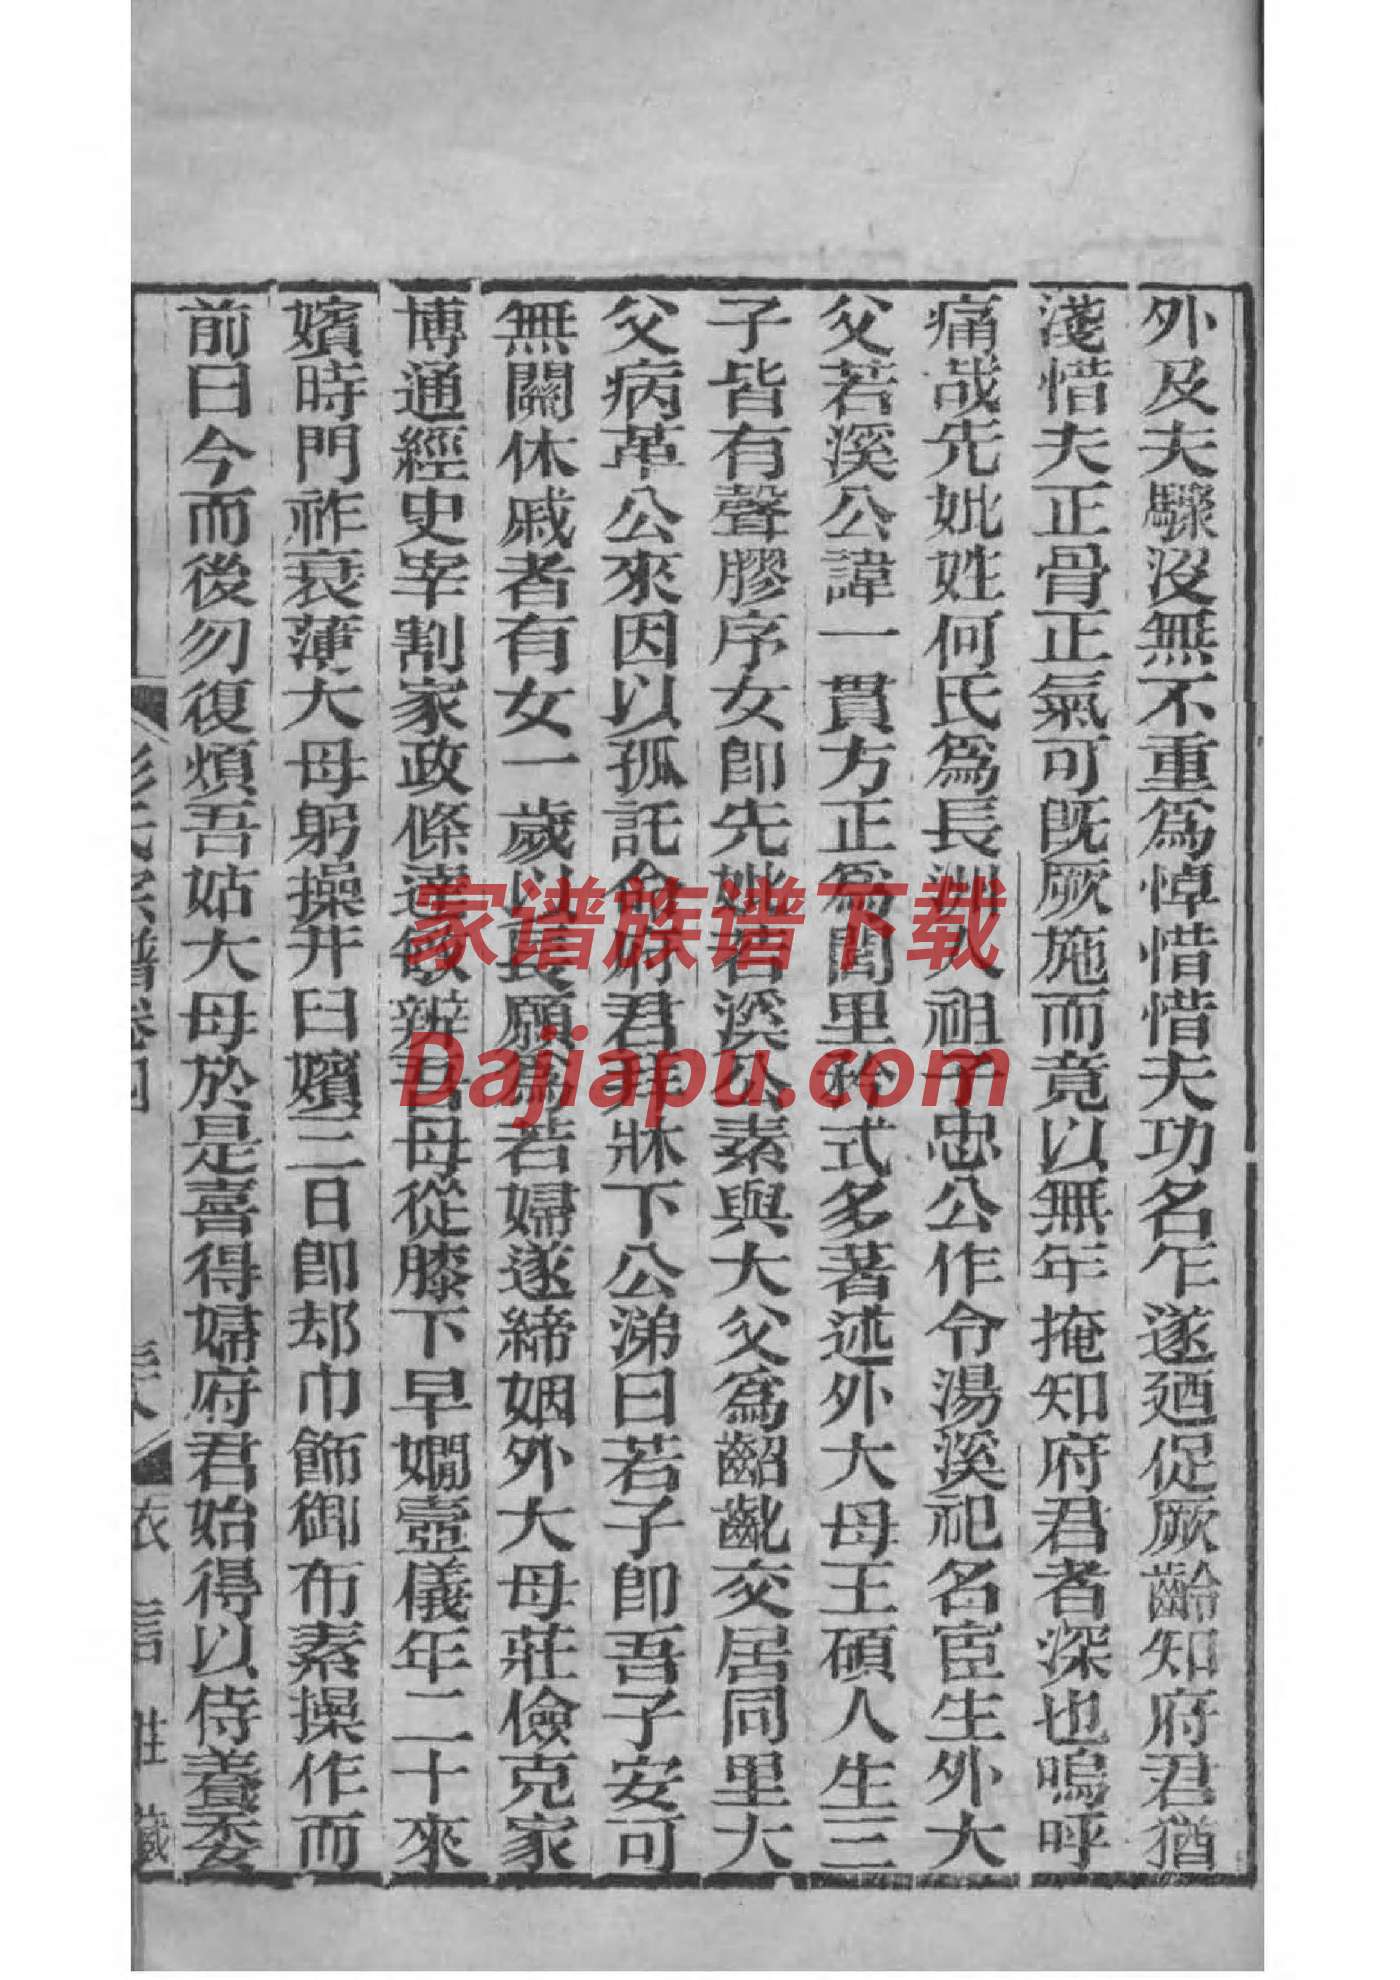 外及夫驟沒無不重爲悼惜惜夫功名乍遂廼促厥齡知府君猶
淺惜夫正骨正氣可旣厥施而竟以無年掩知府君者深也嗚呼
痛哉先妣姓何氏爲長洲人祖于忠公作令湯溪祀名宦生外大
父若溪公諱一貫方正爲閭里矜式多著述外大母王碩人生三
子皆有聲膠序女卽先妣若溪公素與大父爲齠齔交居同里大
父病革公來因以孤託命府君拜牀下公涕曰若子卽吾子安可
無關休戚者有女一歲以長願爲若婦遂締姻外大母莊儉克家
博通經史宰割家政條達敏辦吾母從膝下早嫺壼儀年二十來
嬪時門祚衰薄大母躬操井臼嬪三日卽却巾飾御布素操作而
前曰今而後勿復煩吾姑大母於是喜得婦府君始得以侍養委
彭氏宗譜卷四
衣言莊藏
家谱族谱下载
Dajiapu.com